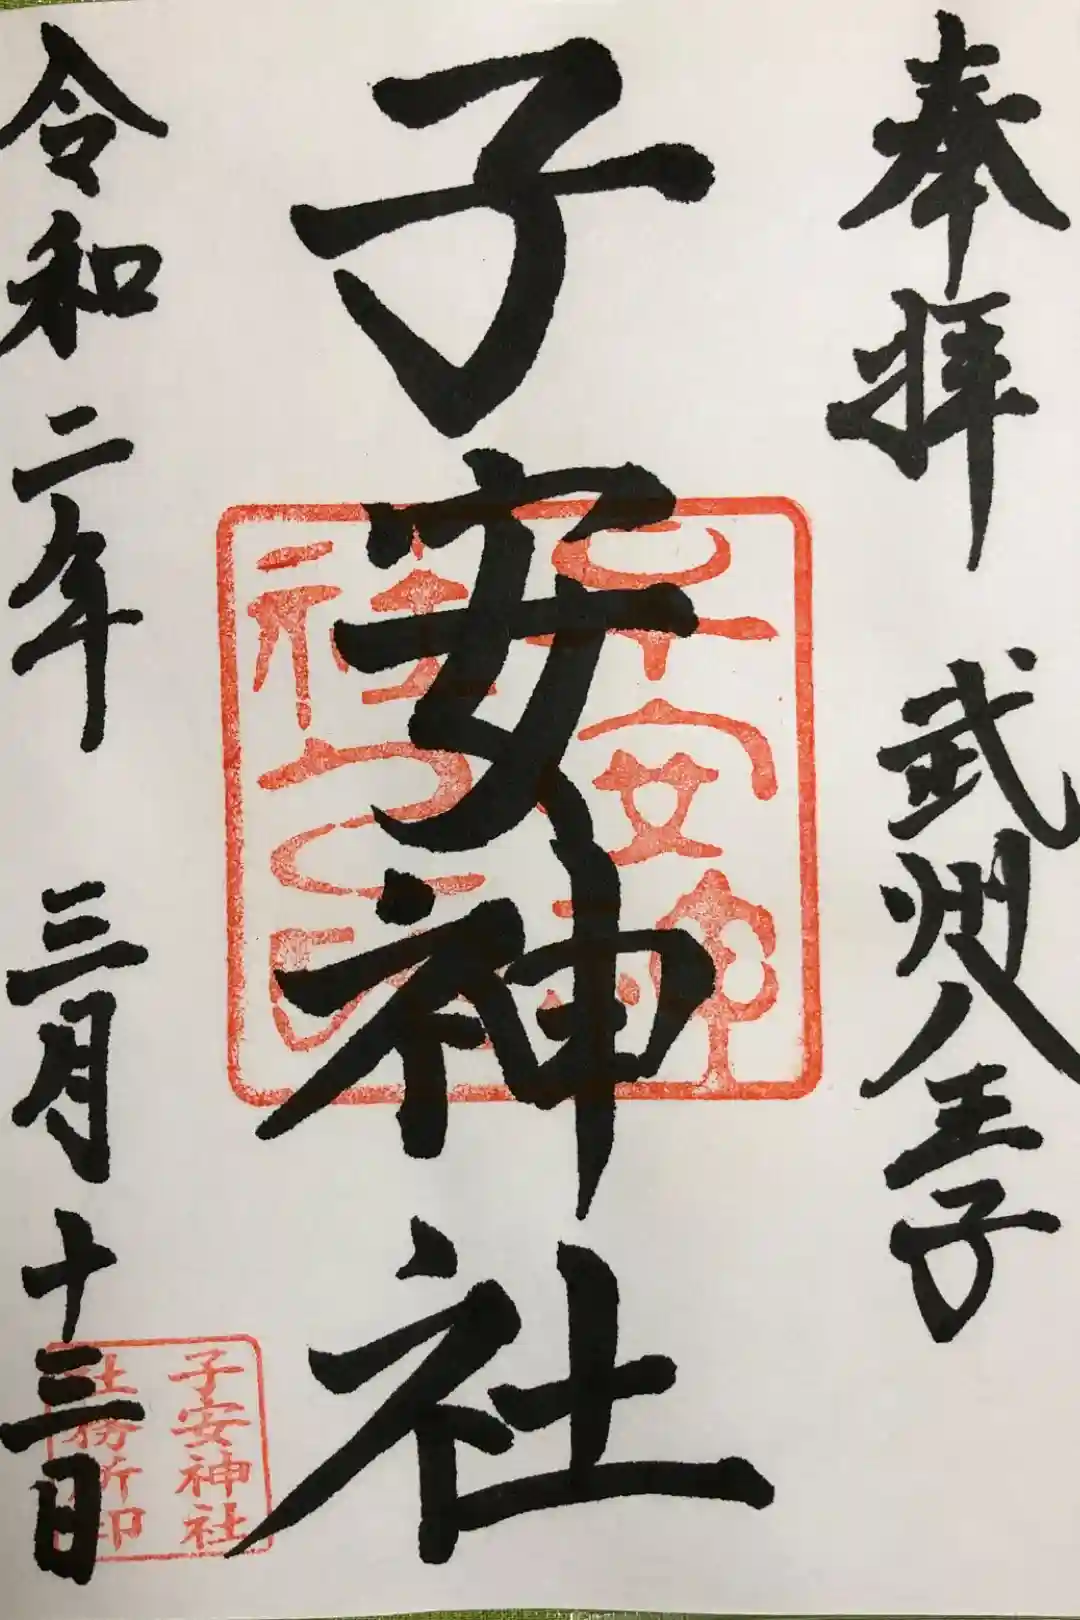 奉拝 武州八王子
子安神社
令和二年 三月十三日
子安神社
社務所印